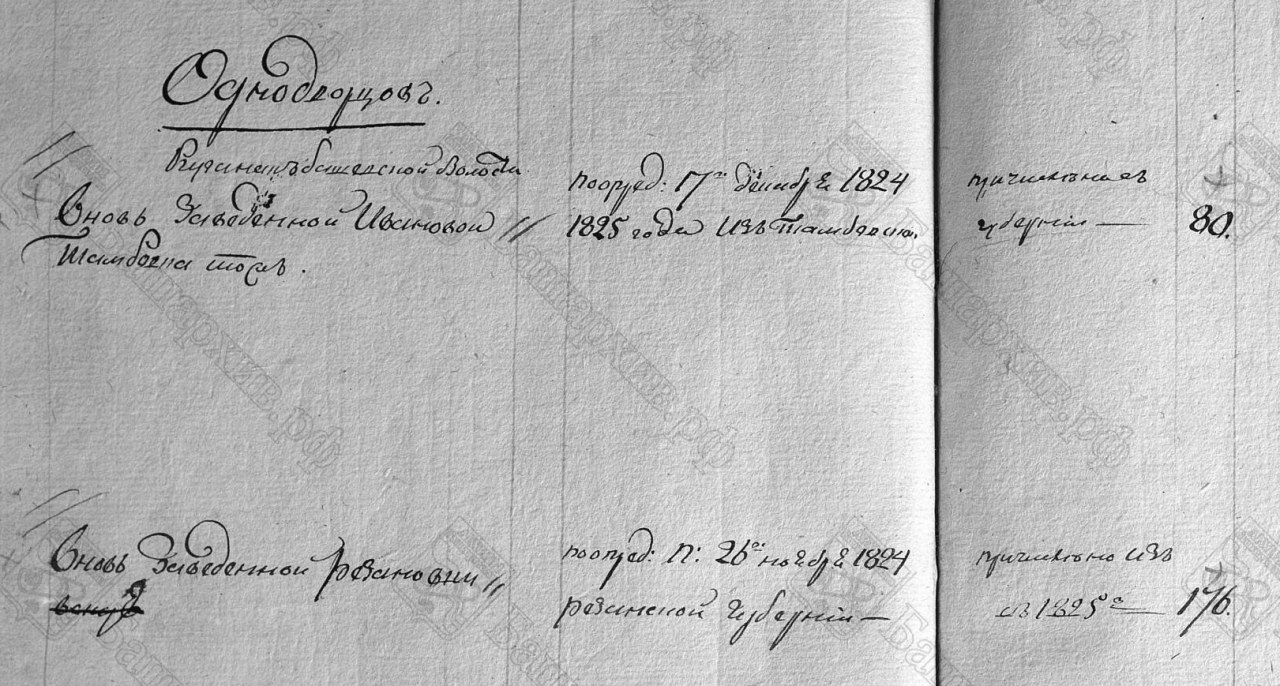 Однодворцовъ.
волости
Вновь Заведенной Ивановой
Тамбовка тосъ.
поопред: 17го декабря 1824
1825 года Изъ Тамбовск.
причислено съ
губернiи — 80.
Вновь Заведенной Резановки
поопред: П: 26го ноября 1824
резанской Губернiи —
причислено изъ
съ 1825го — 176.
Башархив.рф